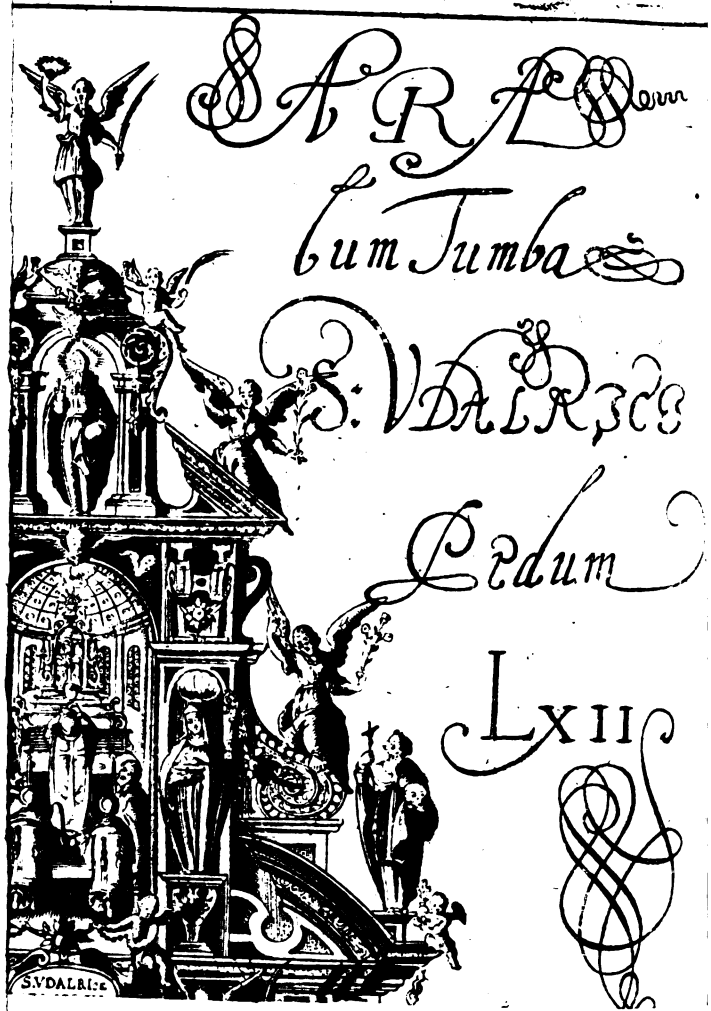 SARA
bum Tumba
S: VDALRICI
Pedum
LXII
S. VDALRICE